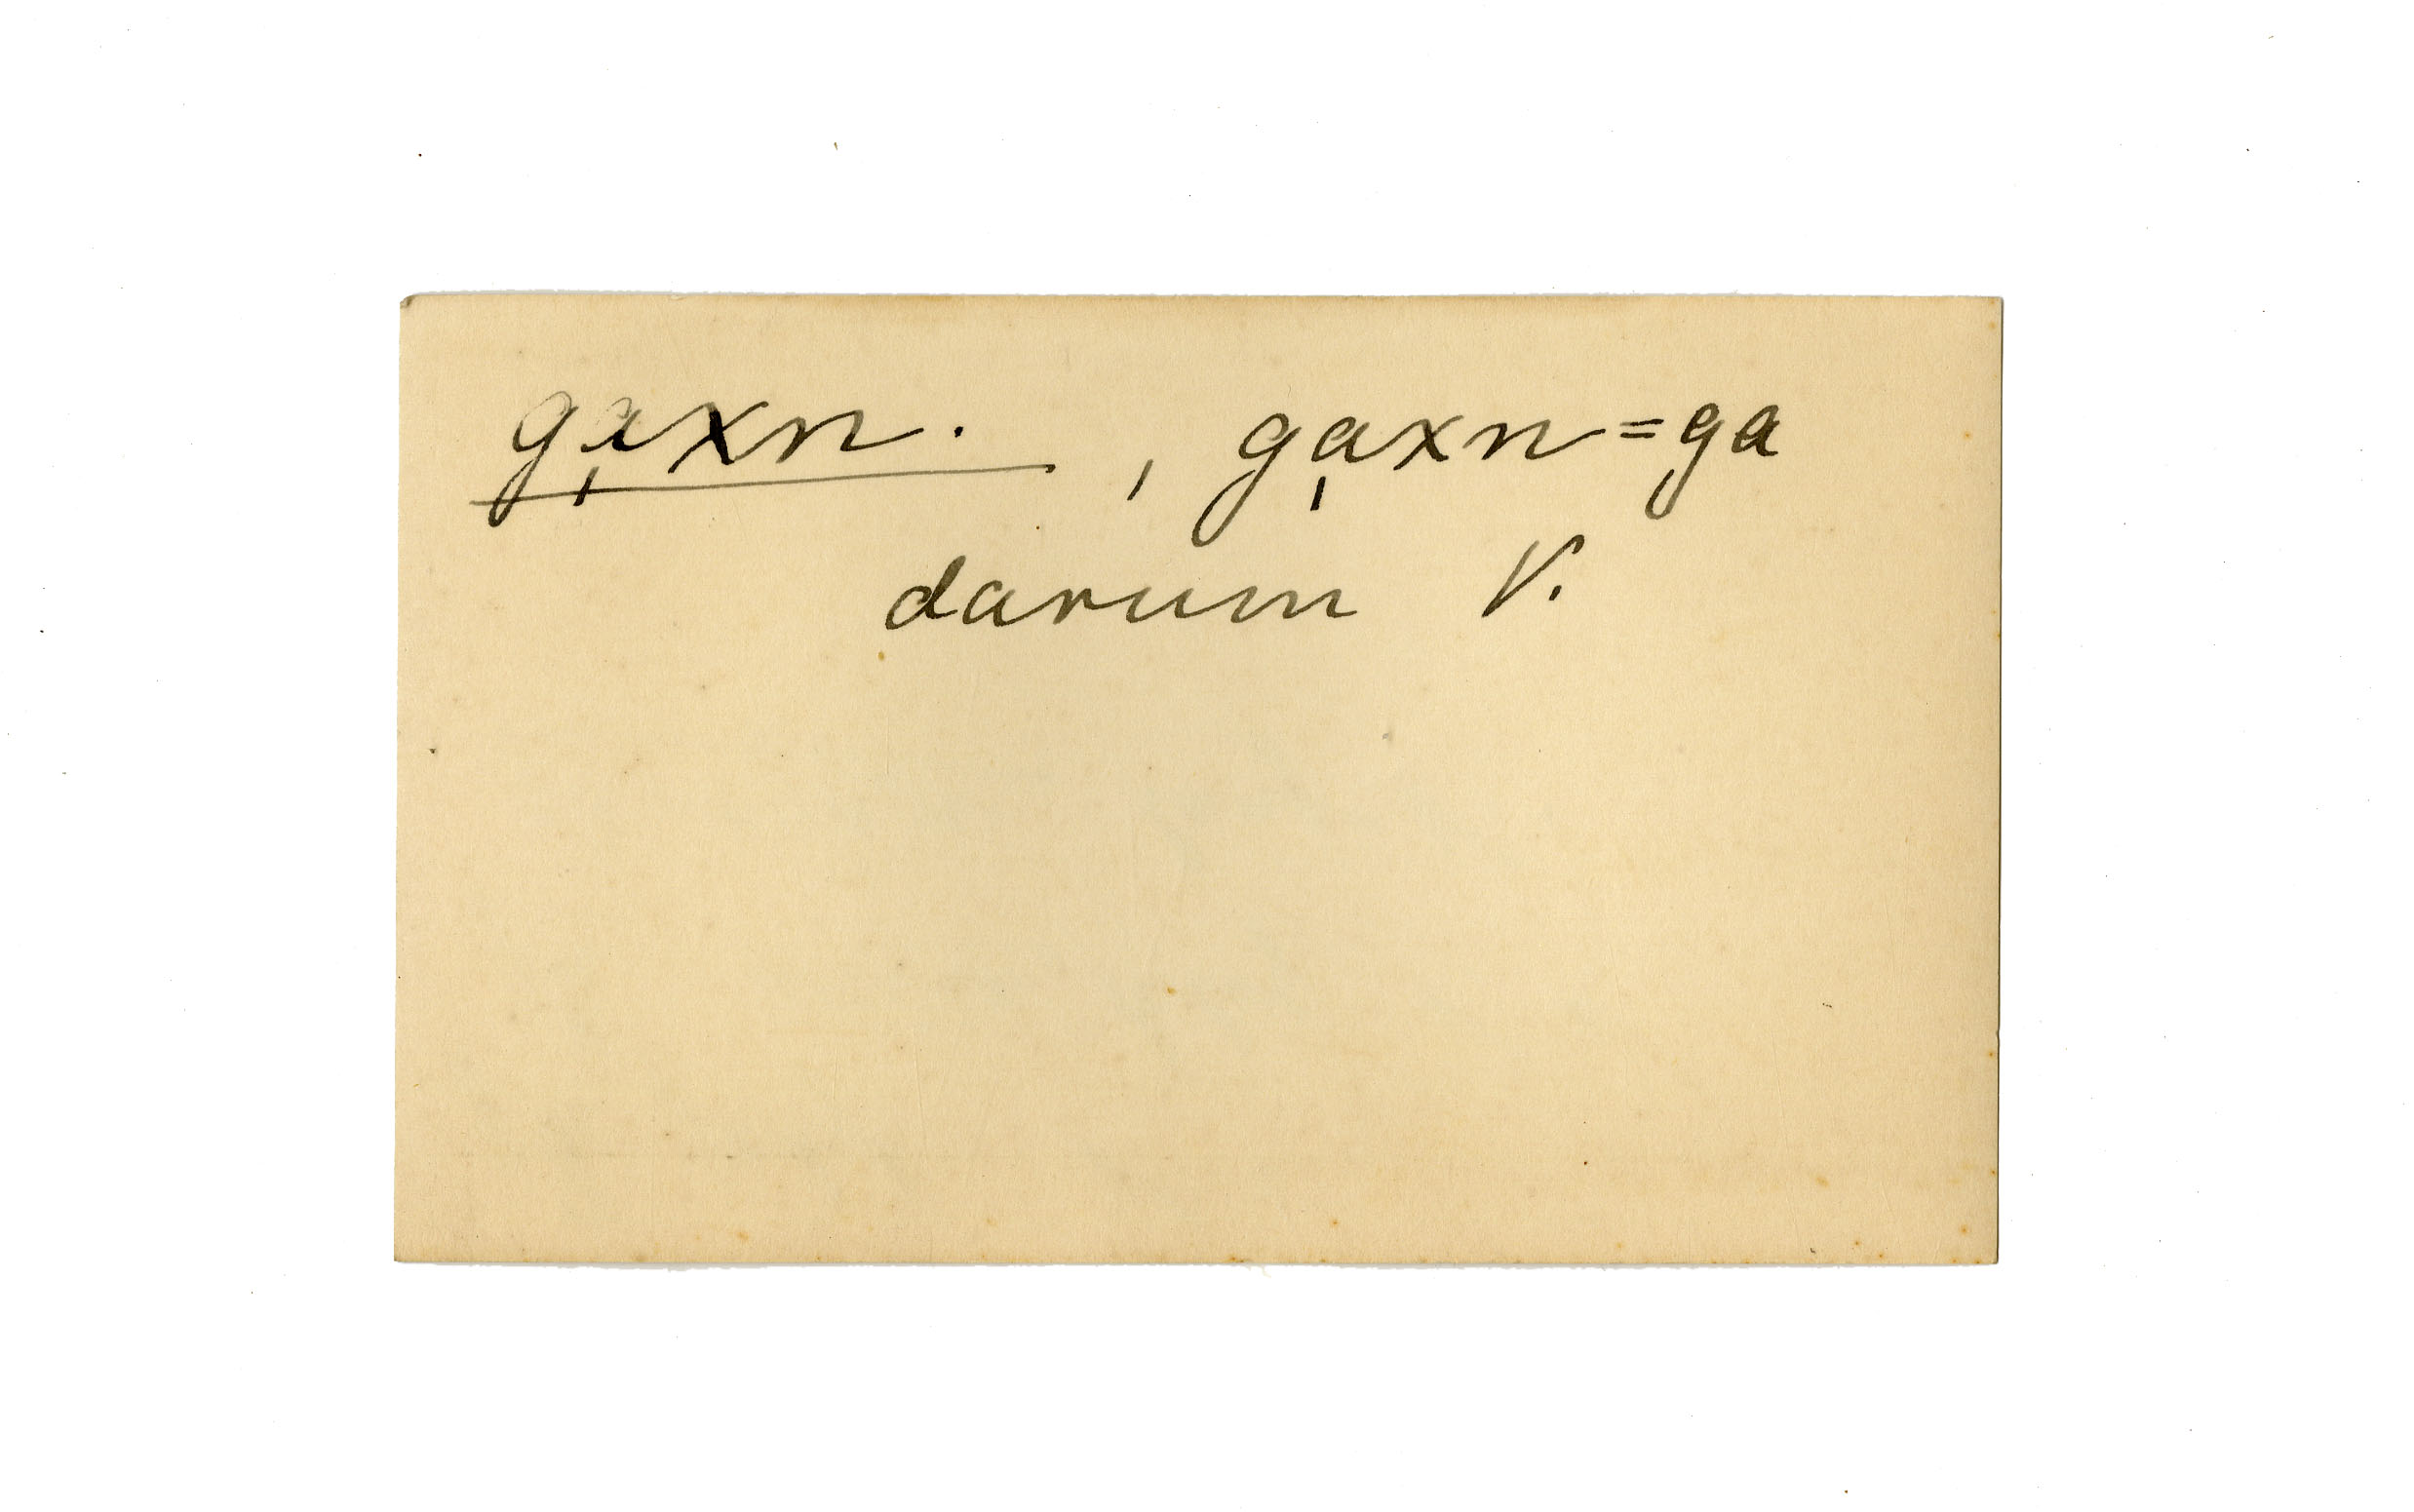 ga̩xn. , ga̩xn=ga
darum V.